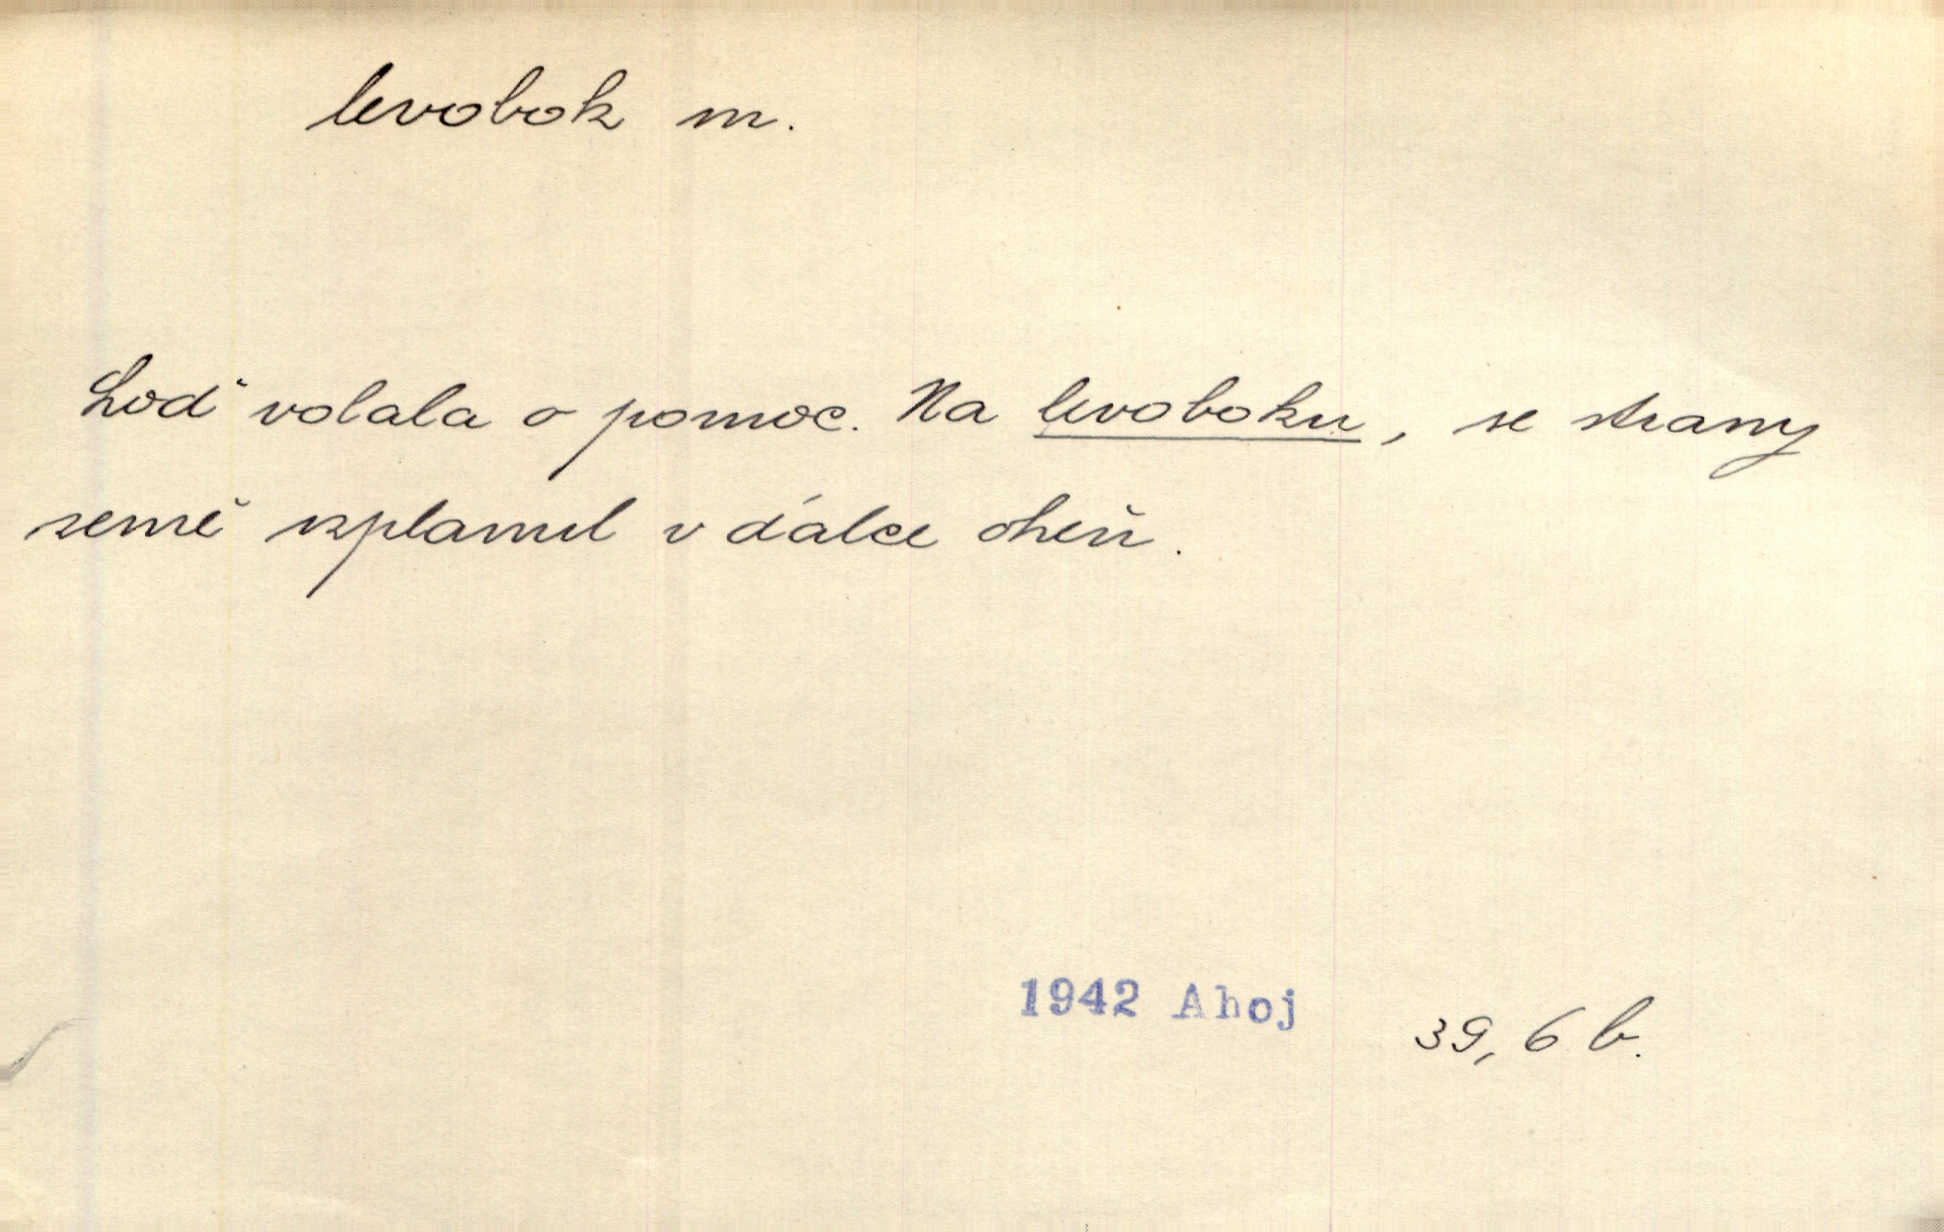 levobok m.
Loď volala o pomoc. Na levoboku, se strany
země vzplanul v dálce oheň.
1942 Ahoj 39, 6 b.